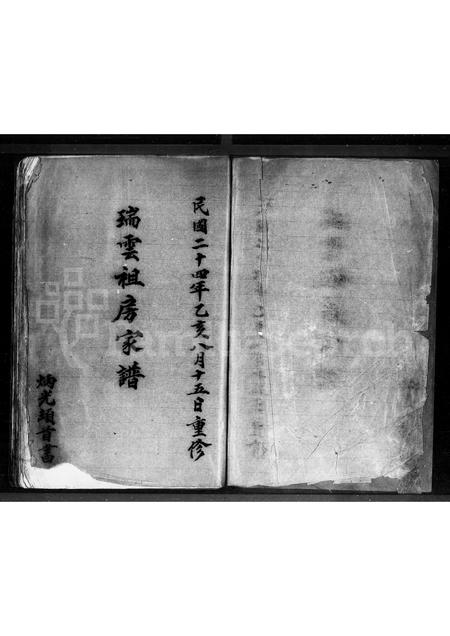 民國二十四年乙亥八月十五日重修
瑞雲祖房家譜
炳光頓首書